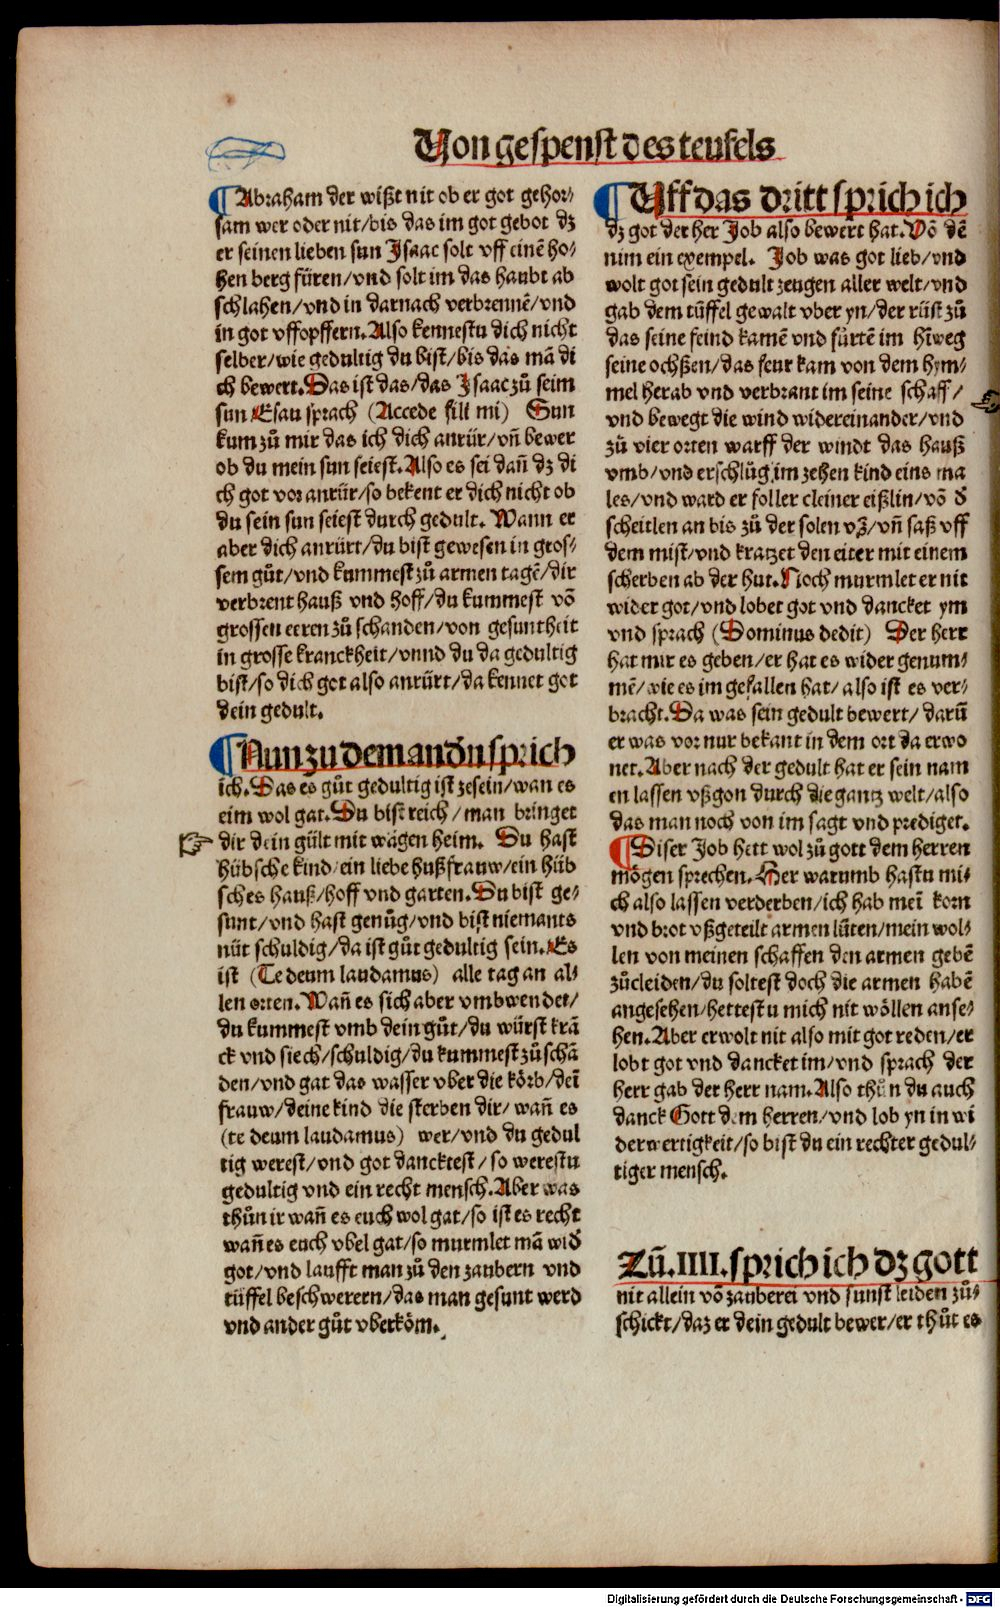 Von gespenst des teufels
¶ Abraham der wißt nit ob er got gehor⸗
sam wer oder nit/bis das im got gebot dz
er seinen lieben sun Isaac solt vff einē ho⸗
hen berg füren/vnd solt im das haubt ab
schlahen/vnd in darnach verbrennē/vnd
in got vffopffern. Also kennestu dich nicht
selber/wie gedultig du bist/bis das mā di
ch bewert. Das ist das/das Isaac zů seim
sun Esau sprach (Accede fili mi) Sun
kum zů mir das ich dich anrür/vn̄ bewer
ob du mein sun seiest. Also es sei dan̄ dz di
ch got vor anrür/so bekent er dich nicht ob
du sein sun seiest durch gedult. Wann er
aber dich anrürt/du bist gewesen in gros⸗
sem gůt/vnd kummest zů armen tagē/dir
verbrent hauß vnd hoff/du kummest vō
grossen eeren zů schanden/von gesuntheit
in grosse kranckheit/vnnd du da gedultig
bist/so dich got also anrürt/da kennet got
dein gedult.
¶ Nun zu dem andn̄ sprich
ich. Das es gůt gedultig ist zesein/wan es
eim wol gat. Du bist reich/man bringet
dir dein gült mit wägen heim. Du hast
hübsche kind/ein liebe hußfrauw/ein hüb
sches hauß/hoff vnd garten. Du bist ge⸗
sunt/vnd hast genůg/vnd bist niemants
nüt schuldig/da ist gůt gedultig sein. Es
ist (Te deum laudamus) alle tag an al⸗
len orten. Wan̄ es sich aber vmbwendet/
du kummest vmb dein gůt/du würst krā
ck vnd siech/schuldig/du kummest zů schā
den/vnd gat das wasser vber die körb/deī
frauw/deine kind die sterben dir/wan̄ es
(te deum laudamus) wer/vnd du gedul
tig werest/vnd got dancktest/so werestu
gedultig vnd ein recht mensch. Aber was
thůn ir wan̄ es euch wol gat/so ist es recht
wan̄ es euch vbel gat/so murmlet mā wid̄
got/vnd laufft man zů den zaubern vnd
tüffel beschwerern/das man gesunt werd
vnd ander gůt vberköm.
¶ Vff das dritt sprich ich
dz got der her Job also bewert hat. Vō dē
nim ein exempel. Job was got lieb/vnd
wolt got sein gedult zeugen aller welt/vnd
gab dem tüffel gewalt vber yn/der rüst zů
das seine feind kamē vnd fürtē im hīweg
seine ochßen/das feur kam von dem hym⸗
mel herab vnd verbrant im seine schaff/
vnd bewegt die wind widereinander/vnd
zů vier orten warff der windt das hauß
vmb/vnd erschlůg im zehen kind eins ma
les/vnd ward er foller cleiner eißlin/vō d̄
scheitlen an bis zů der solen vß/vn̄ saß vff
dem mist/vnd kratzet den eiter mit einem
scherben ab der hut. Noch murmlet er nit
wider got/vnd lobet got vnd dancket ym
vnd sprach (Dominus dedit) Der herr
hat mir es geben/er hat es wider genum⸗
mē/wie es im gefallen hat/also ist es ver⸗
bracht. Da was sein gedult bewert/darū
er was vor nur bekant in dem ort da er wo
net. Aber nach der gedult hat er sein nam
en lassen vßgon durch die gantz welt/also
das man noch von im sagt vnd prediget.
¶ Diser Job hett wol zů gott dem herren
mögen sprechen. Her warumb hastu mi⸗
ch also lassen verderben/ich hab meī korn
vnd brot vßgeteilt armen lüten/mein wol⸗
len von meinen schaffen den armen gebē
zůcleiden/du soltest doch die armen habē
angesehen/hettestu mich nit wöllen anse⸗
hen. Aber er wolt nit also mit got reden/er
lobt got vnd dancket im/vnd sprach der
herr gab der herr nam. Also thůn du auch
danck Gott dem herren/vnd lob yn in wi
derwertigkeit/so bist du ein rechter gedul⸗
tiger mensch.
Zů. IIII. sprich ich dz gott
nit allein vō zauberei vnd sunst leiden zů⸗
schickt/daz er dein gedult bewer/er thůt es
Digitalisierung gefördert durch die Deutsche Forschungsgemeinschaft - DFG